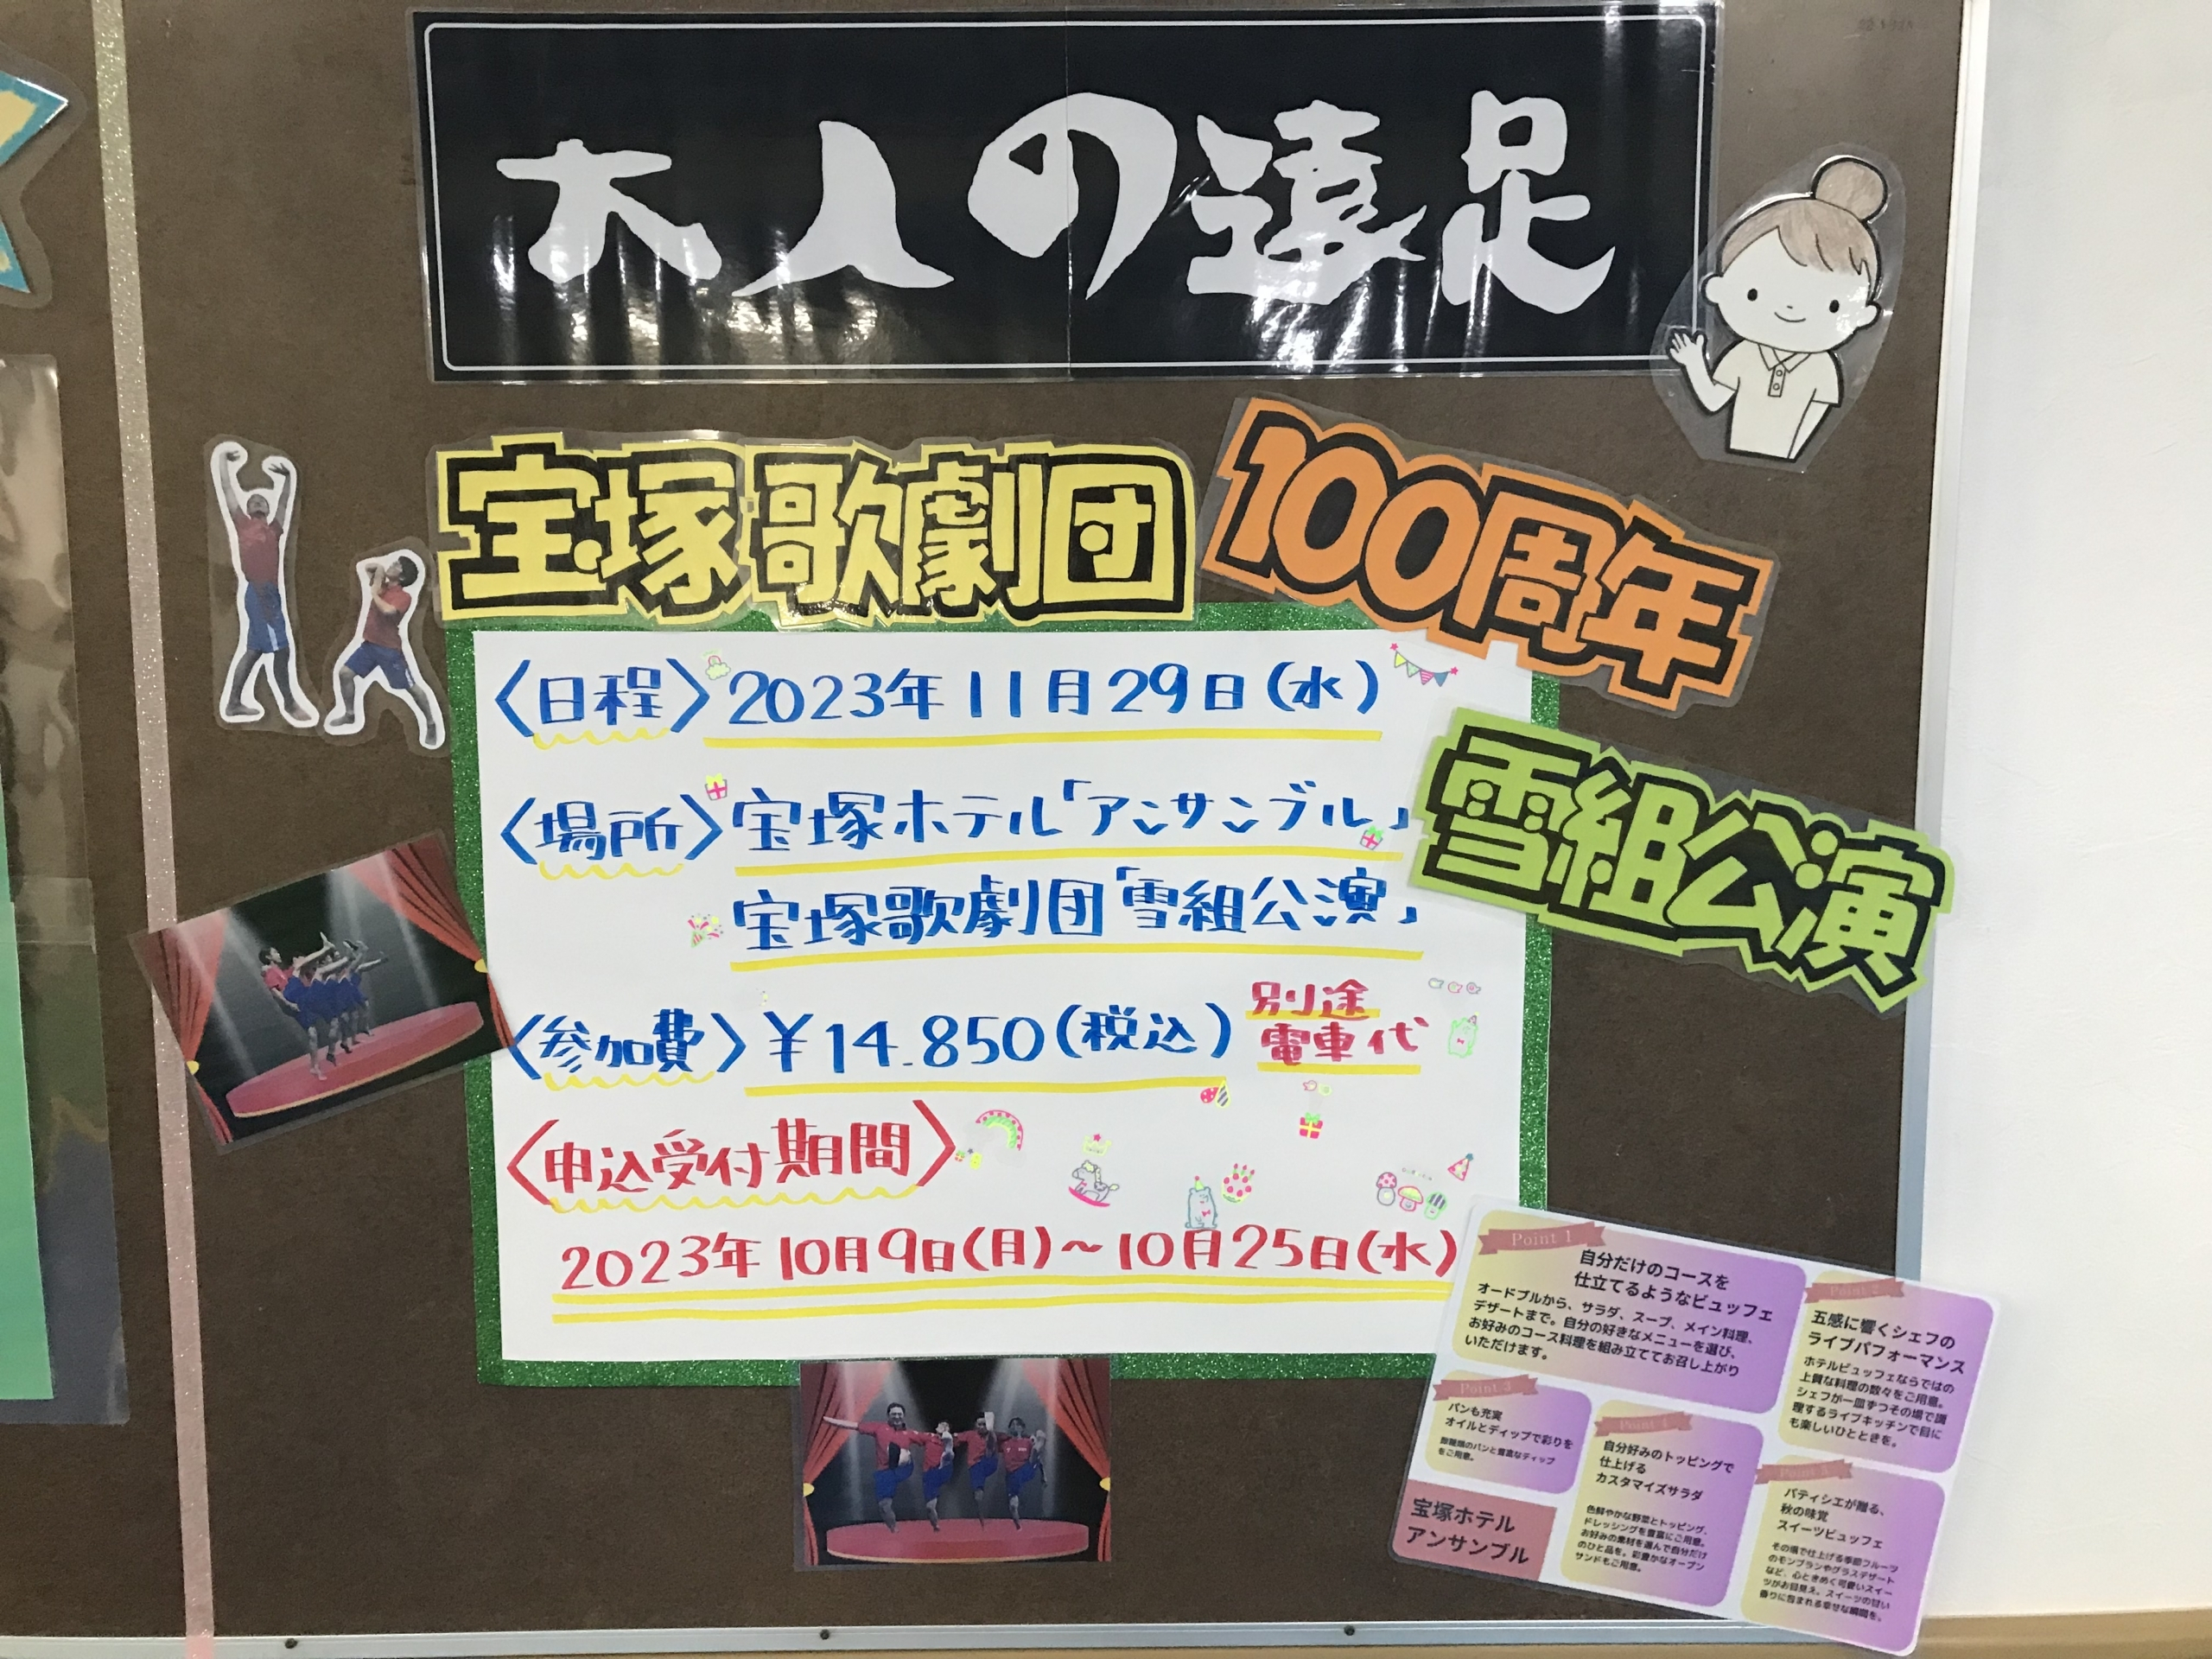 大人の遠足
宝塚歌劇団
100周年
雪組公演
〈日程〉2023年11月29日(水)
〈場所〉宝塚ホテル「アンサンブル」
宝塚歌劇団「雪組公演」
〈参加費〉¥14.850(税込)
別途
電車代
〈申込受付期間〉
2023年10月9日(月)~10月25日(水)
Point 1
自分だけのコースを
仕立てるようなビュッフェ
オードブルから、サラダ、スープ、メイン料理、
デザートまで。自分の好きなメニューを選び、
お好みのコース料理を組み立ててお召し上がり
いただけます。
Point 2
五感に響くシェフの
ライブパフォーマンス
ホテルビュッフェならではの
上質な料理の数々をご用意。
シェフが一皿ずつその場で調
理するライブキッチンで目に
も楽しいひとときを。
Point 3
パンも充実
オイルとディップで彩りを
数種類のパンと豊富なディップ
をご用意。
Point 4
自分好みのトッピングで
仕上げる
カスタマイズサラダ
色鮮やかな野菜とトッピング、
ドレッシングを豊富にご用意。
お好みの素材を選んで自分だけ
のひと品を。彩豊かなオープン
サンドもご用意。
Point 5
パティシエが贈る、
秋の味覚
スイーツビュッフェ
その場で仕上げる季節フルーツ
のモンブランやグラスデザート
など、心ときめく可愛いスイー
ツがお目見え。スイーツの甘い
香りに包まれる幸せな瞬間を。
宝塚ホテル
アンサンブル